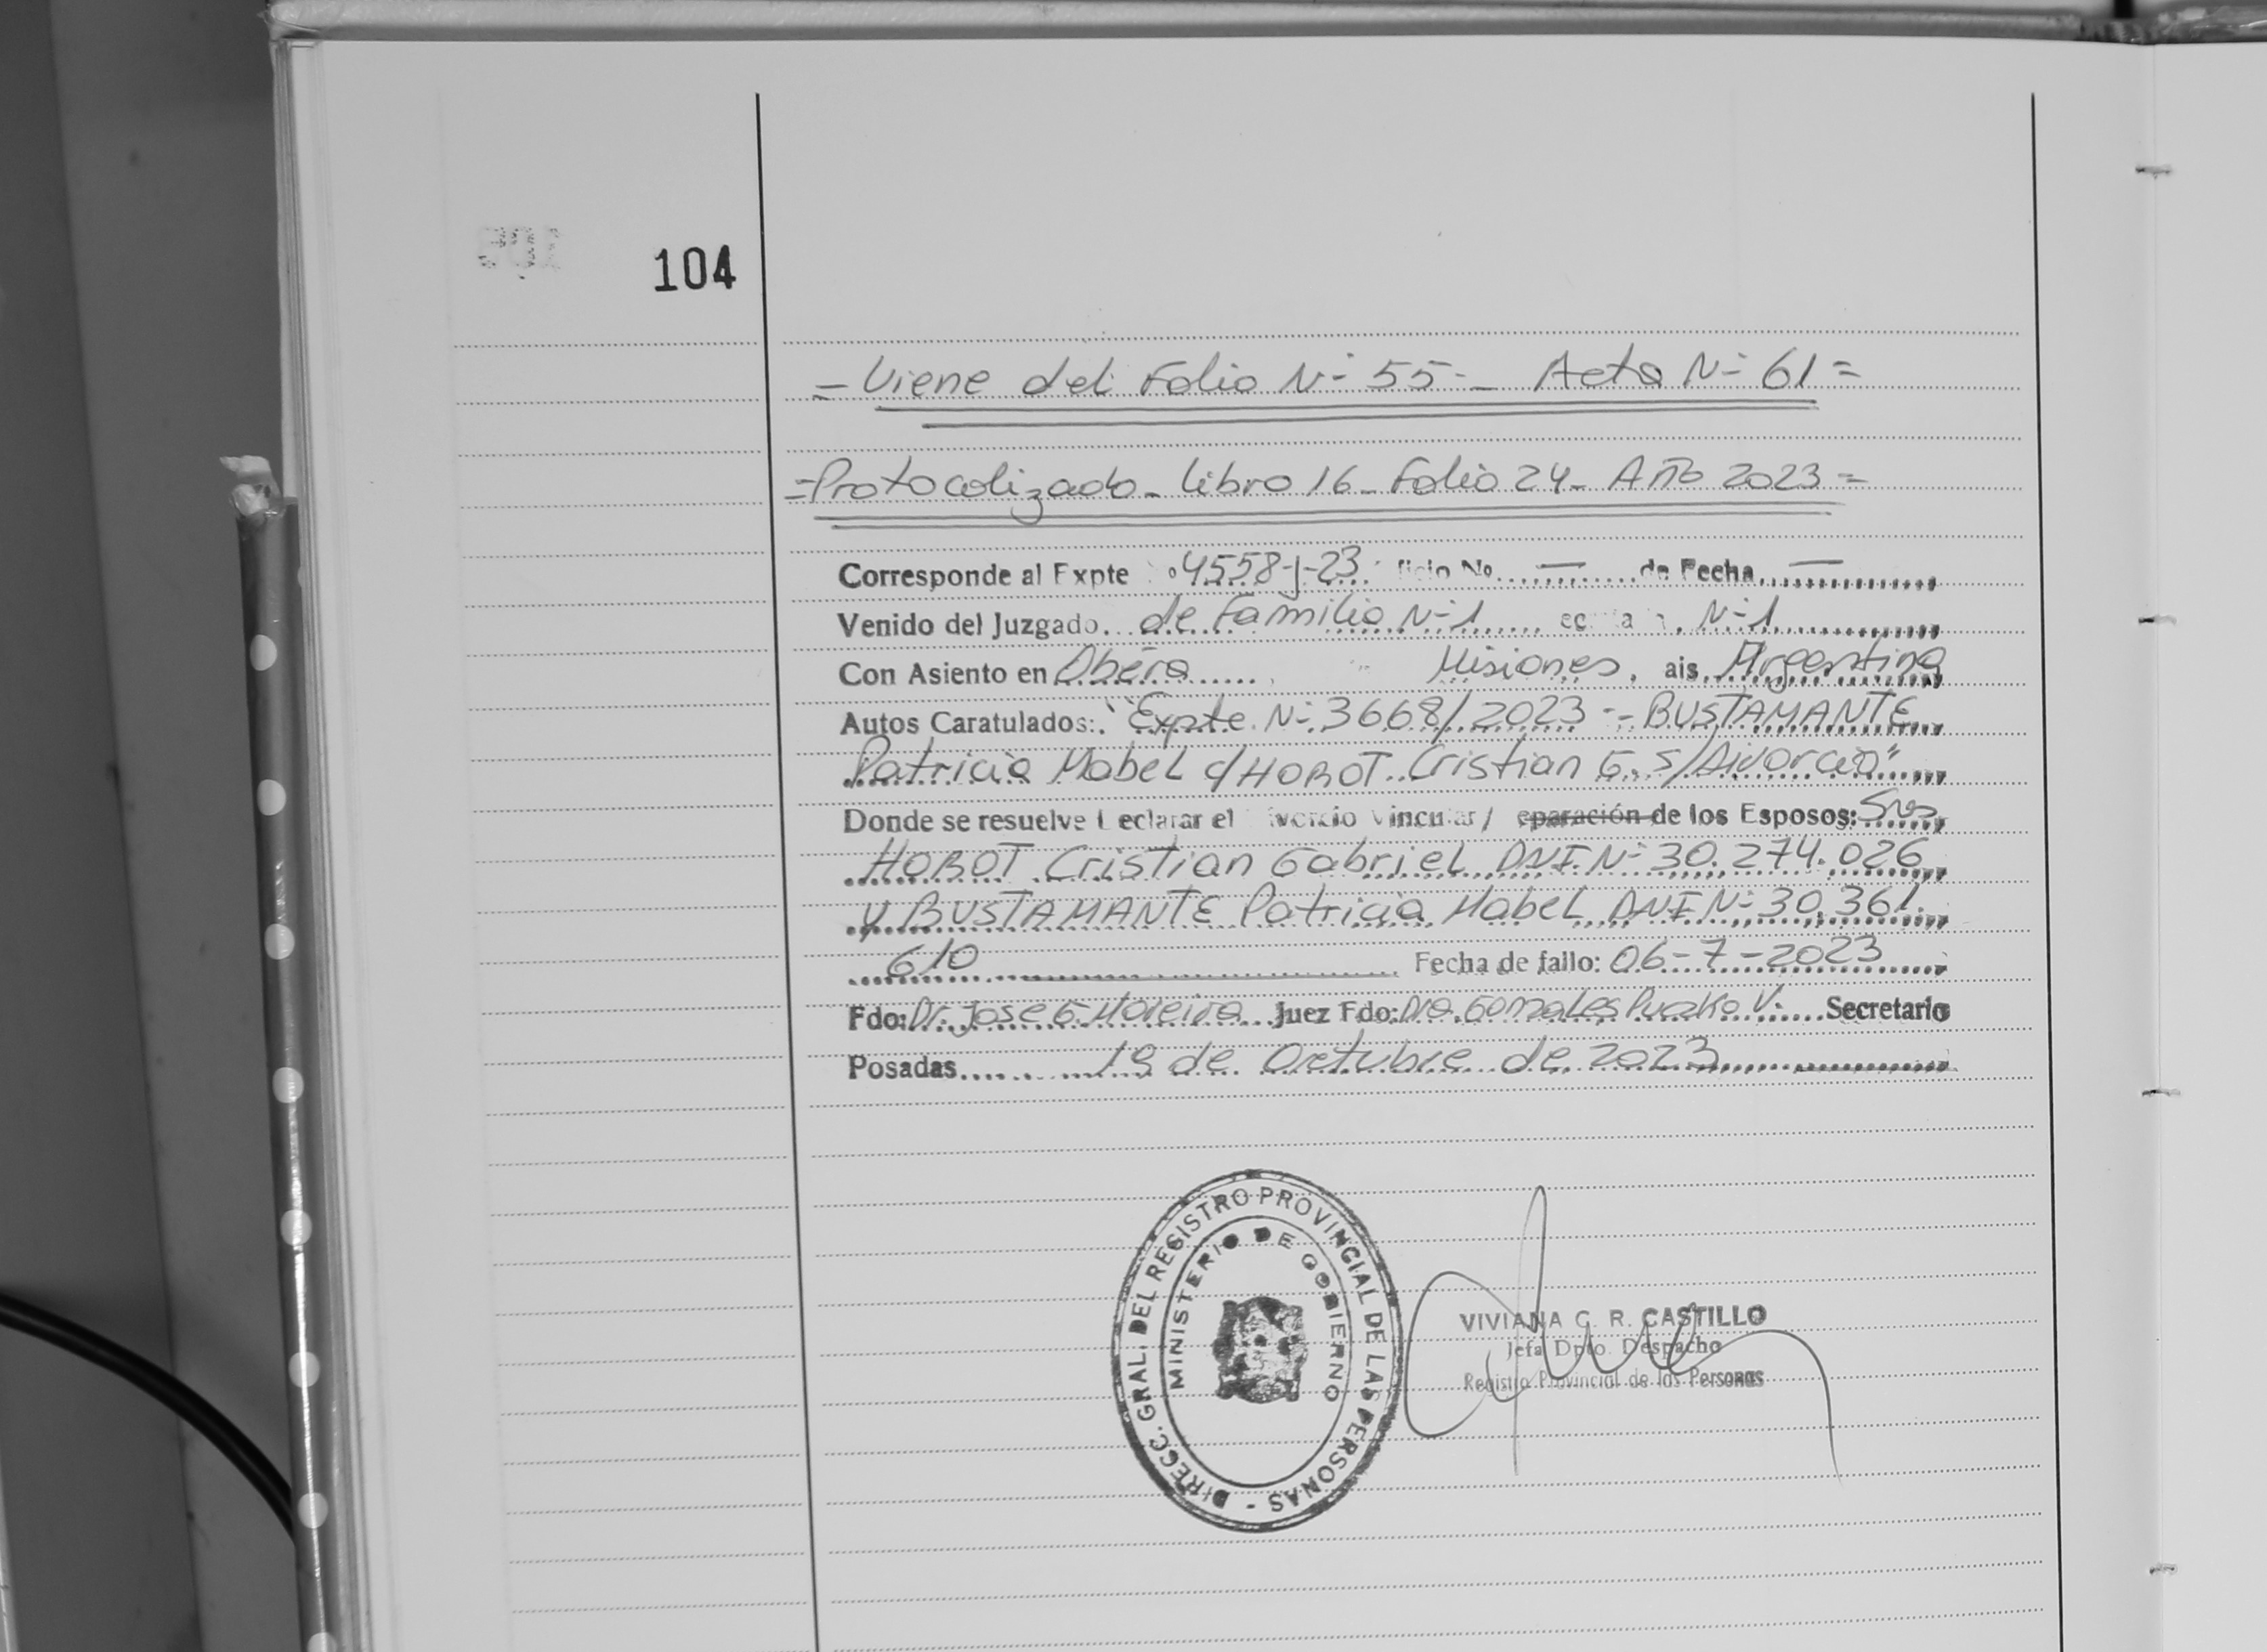 104
= Viene del Folio N° 55 - Acta N° 61 =
= Protocolizado - Libro 16 - Folio 24 - Año 2023 =
Corresponde al Expte 4558-J-23 No. — de Fecha —
Venido del Juzgado de Familia N° 1 N° 1
Con Asiento en Oberá Misiones, ais Argentina
Autos Caratulados: "Expte. N° 3668/2023 - BUSTAMANTE
Patricia Mabel c/ HOROT Cristian G. s/ Divorcio"
Donde se resuelve eclarar el ivorcio Vincular / eparación de los Esposos: Sres
HOROT Cristian Gabriel DNI N° 30.274.026
y BUSTAMANTE Patricia Mabel DNI N° 30.361.
610 Fecha de fallo: 06-7-2023
Fdo: Dr. Jose G. Moreira Juez Fdo: Dra. Gonzales V. Secretario
Posadas 19 de Octubre de 2023
DIRECC. GRAL. DEL REGISTRO PROVINCIAL DE LAS PERSONAS -
MINISTERIO DE GOBIERNO
VIVIANA C. R. CASTILLO
Jefa Dpto. Despacho
Registro Provincial de las Personas